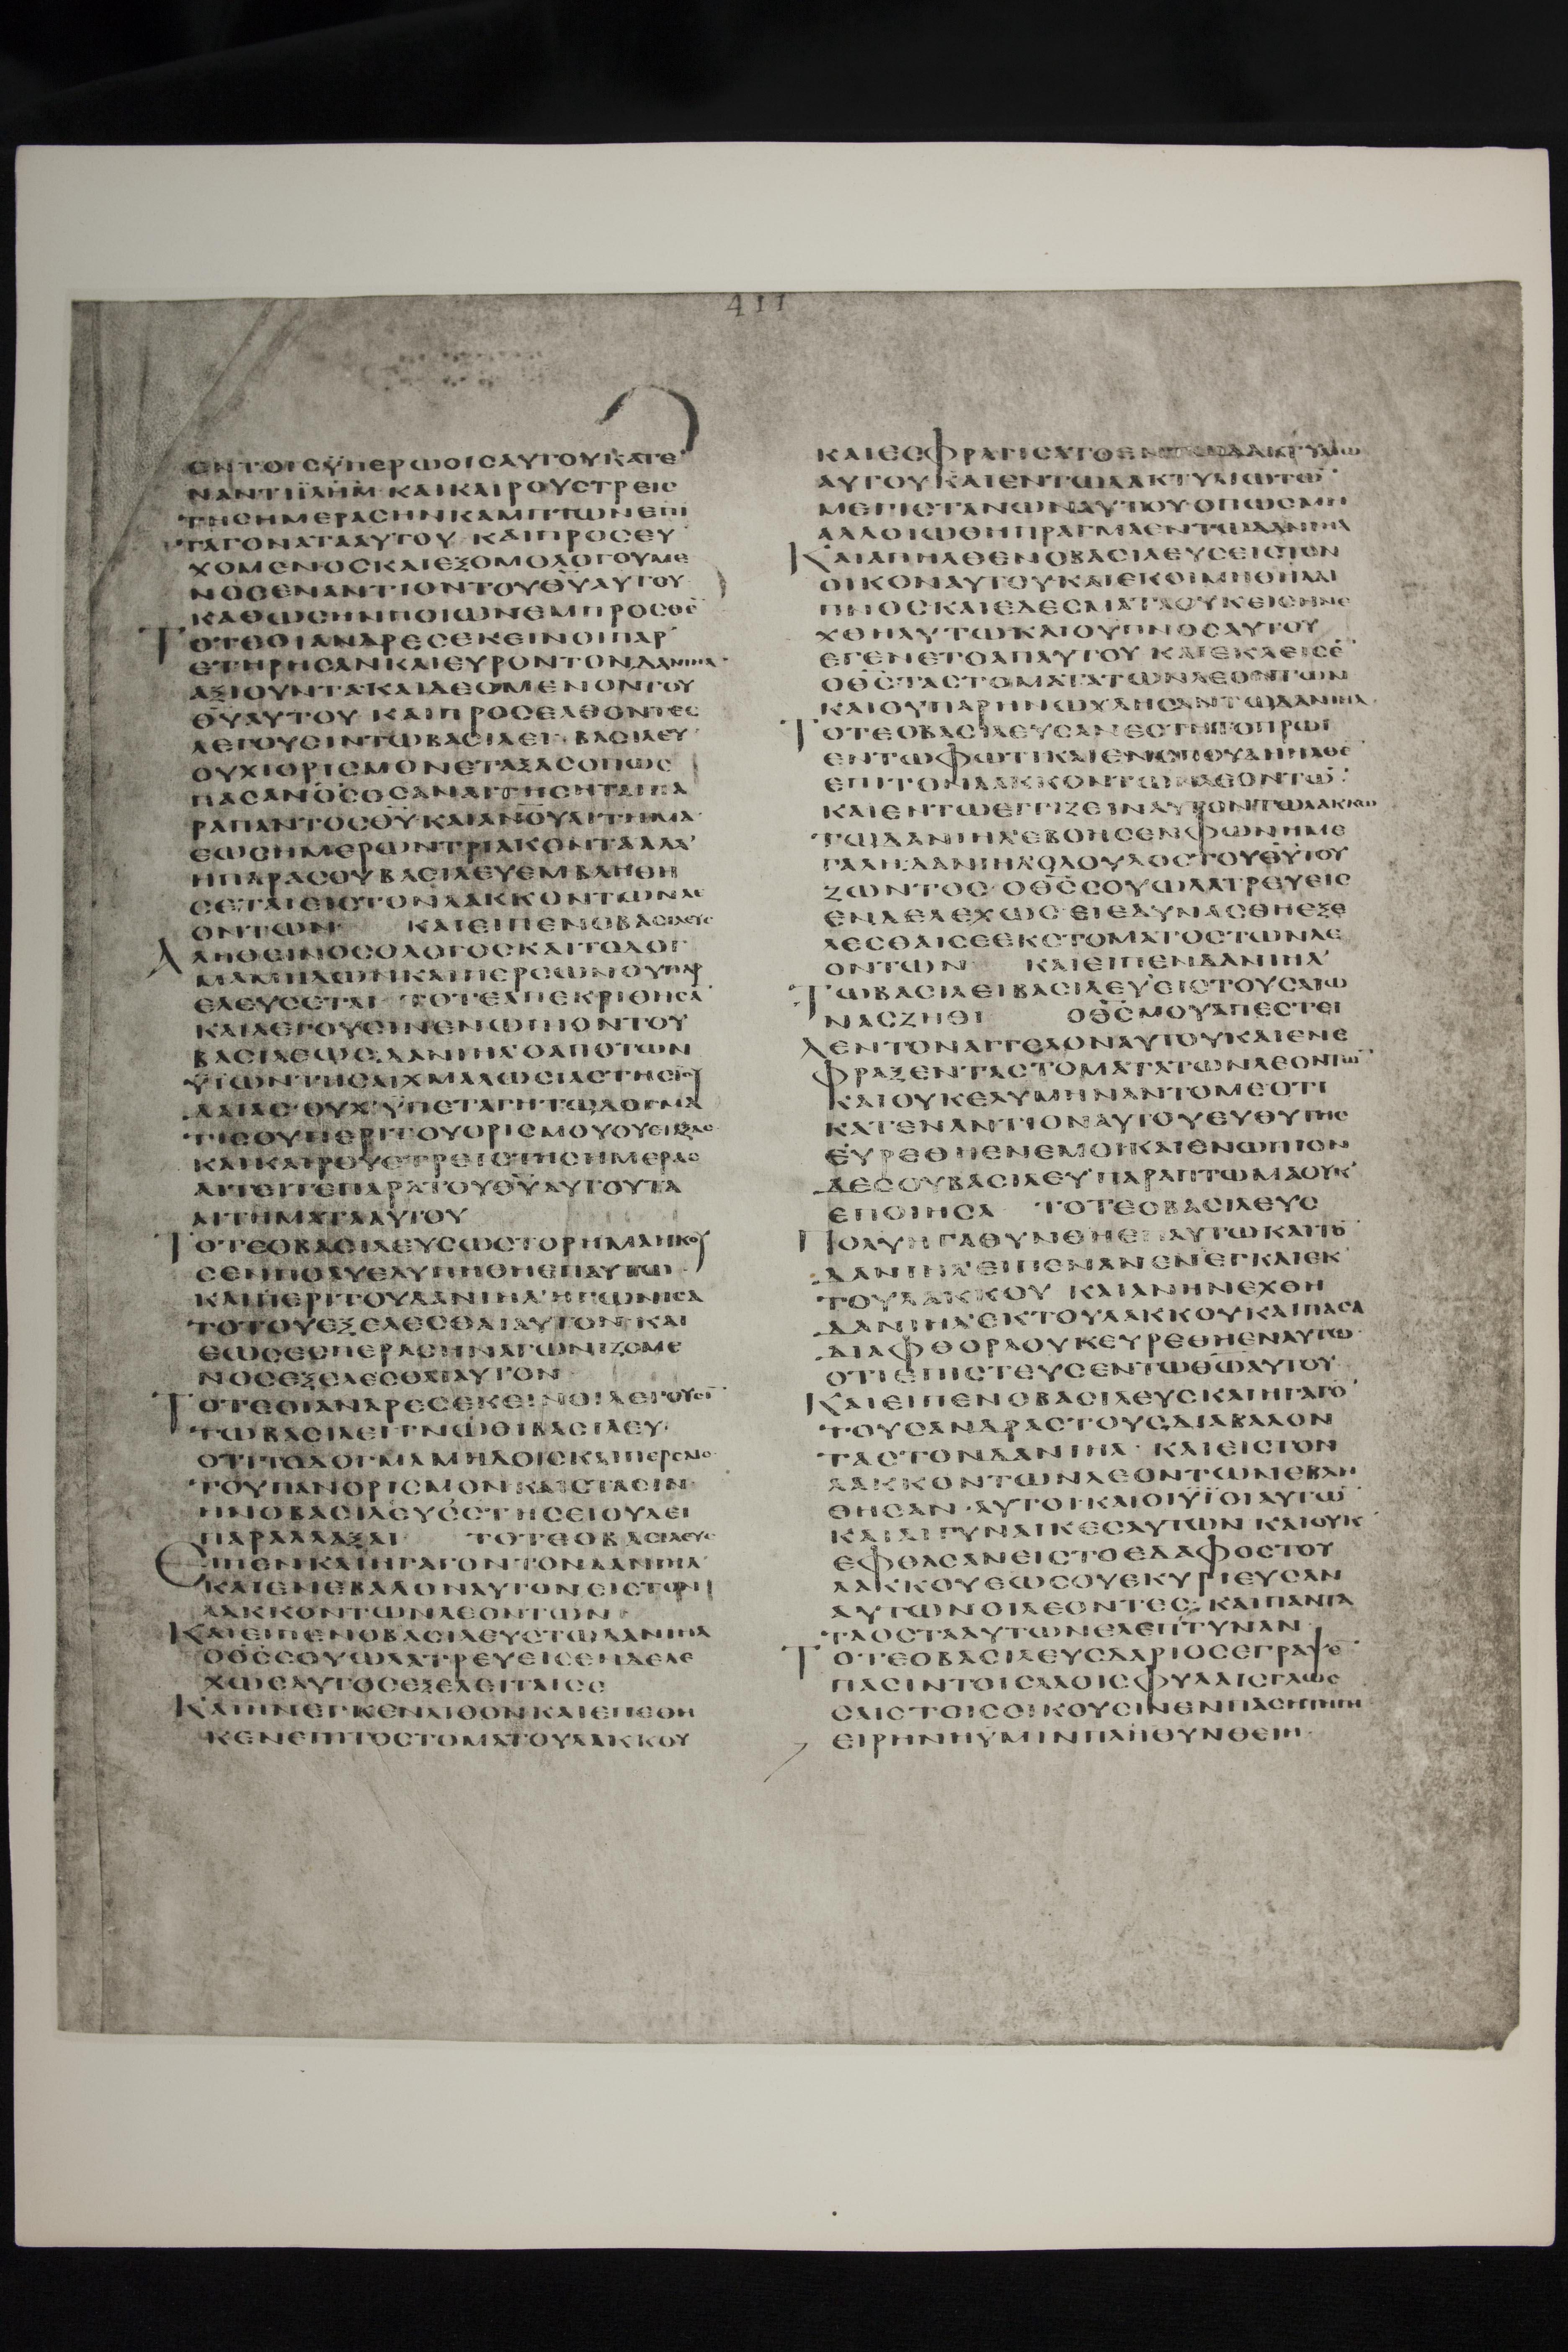 411
ΕΝΤΟΙΣΫΠΕΡΩΟΙΣΑΥΤΟΥΚΑΤΕ
ΝΑΝΤΙΪΛΗΜ·ΚΑΙΚΑΙΡΟΥΣΤΡΕΙΣ
ΤΗΣΗΜΕΡΑΣΗΝΚΑΜΠΤΩΝΕΠΙ
ΤΑΓΟΝΑΤΑΑΥΤΟΥ ΚΑΙΠΡΟΣΕΥ
ΧΟΜΕΝΟΣΚΑΙΕΞΟΜΟΛΟΓΟΥΜΕ
ΝΟΣΕΝΑΝΤΙΟΝΤΟΥΘΥΑΥΤΟΥ
ΚΑΘΩΣΗΝΠΟΙΩΝΕΜΠΡΟΣΘΕ
ΤΟΤΕΟΙΑΝΔΡΕΣΕΚΕΙΝΟΙΠΑΡ
ΕΤΗΡΗΣΑΝΚΑΙΕΥΡΟΝΤΟΝΔΑΝΙΗΛ
ΑΞΙΟΥΝΤΑΚΑΙΔΕΟΜΕΝΟΝΤΟΥ
ΘΥΑΥΤΟΥ ΚΑΙΠΡΟΣΕΛΘΟΝΤΕΣ
ΛΕΓΟΥΣΙΝΤΩΒΑΣΙΛΕΙ·ΒΑΣΙΛΕΥ
ΟΥΧΙΟΡΙΣΜΟΝΕΤΑΞΑΣΟΠΩΣ
ΠΑΣΑΝΟΣΟΣΑΝΑΙΤΗΣΗΤΑΙΠΑ
ΡΑΠΑΝΤΟΣΘΥΚΑΙΑΝΟΥΑΙΤΗΜΑ
ΕΩΣΗΜΕΡΩΝΤΡΙΑΚΟΝΤΑΑΛΛ
ΗΠΑΡΑΣΟΥΒΑΣΙΛΕΥΕΜΒΛΗΘΗ
ΣΕΤΑΙΕΙΣΤΟΝΛΑΚΚΟΝΤΩΝΛΕ
ΟΝΤΩΝ ΚΑΙΕΙΠΕΝΟΒΑΣΙΛΕΥΣ
ΑΛΗΘΙΝΟΣΟΛΟΓΟΣΚΑΙΤΟΔΟΓ
ΜΑΜΗΔΩΝΚΑΙΠΕΡΣΩΝΟΥΠΑΡ
ΕΛΕΥΣΕΤΑΙ ΤΟΤΕΑΠΕΚΡΙΘΗΣΑ
ΚΑΙΛΕΓΟΥΣΙΝΕΝΩΠΙΟΝΤΟΥ
ΒΑΣΙΛΕΩΣ·ΔΑΝΙΗΛΟΑΠΟΤΩΝ
ΥΙΩΝΤΗΣΑΙΧΜΑΛΩΣΙΑΣΤΗΣΙΟΥ
ΔΑΙΑΣ·ΟΥΧΫΠΕΤΑΓΗΤΩΔΟΓΜΑ
ΤΙΣΟΥΠΕΡΙΤΟΥΟΡΙΣΜΟΥΟΥΕΤΑΞΑΣ
ΚΑΙΚΑΙΡΟΥΣΤΡΕΙΣΤΗΣΗΜΕΡΑΣ
ΑΙΤΕΙΤΕΠΑΡΑΤΟΥΘΥΑΥΤΟΥΤΑ
ΑΙΤΗΜΑΤΑΑΥΤΟΥ
ΤΟΤΕΟΒΑΣΙΛΕΥΣΩΣΤΟΡΗΜΑΗΚΟΥ
ΣΕΝΠΟΛΥΕΛΥΠΗΘΗΕΠΑΥΤΩ
ΚΑΙΠΕΡΙΤΟΥΔΑΝΙΗΛΗΓΩΝΙΣΑ
ΤΟΤΟΥΕΞΕΛΕΣΘΑΙΑΥΤΟΝ ΚΑΙ
ΕΩΣΕΣΠΕΡΑΣΗΝΑΓΩΝΙΖΟΜΕ
ΝΟΣΕΞΕΛΕΣΘΑΙΑΥΤΟΝ
ΤΟΤΕΟΙΑΝΔΡΕΣΕΚΕΙΝΟΙΛΕΓΟΥΣΙ
ΤΩΒΑΣΙΛΕΙΓΝΩΘΙΒΑΣΙΛΕΥ
ΟΤΙΤΟΔΟΓΜΑΜΗΔΟΙΣΚΑΙΠΕΡΣΑΙΣ
ΤΟΥΠΑΝΟΡΙΣΜΟΝΚΑΙΣΤΑΣΙΝ
ΗΝΟΒΑΣΙΛΕΥΣΣΤΗΣΕΙΟΥΔΕΙ
ΠΑΡΑΛΛΑΞΑΙ ΤΟΤΕΟΒΑΣΙΛΕΥΣ
ΕΙΠΕΝΚΑΙΗΓΑΓΟΝΤΟΝΔΑΝΙΗΛ
ΚΑΙΕΝΕΒΑΛΟΝΑΥΤΟΝΕΙΣΤΟΝ
ΛΑΚΚΟΝΤΩΝΛΕΟΝΤΩΝ
ΚΑΙΕΙΠΕΝΟΒΑΣΙΛΕΥΣΤΩΔΑΝΙΗΛ
ΟΘΣΣΟΥΩΛΑΤΡΕΥΕΙΣΕΝΔΕΛΕ
ΧΩΣΑΥΤΟΣΕΞΕΛΕΙΤΑΙΣΕ
ΚΑΙΗΝΕΓΚΕΝΛΙΘΟΝΚΑΙΕΠΕΘΗ
ΚΕΝΕΠΙΤΟΣΤΟΜΑΤΟΥΛΑΚΚΟΥ
ΚΑΙΕΣΦΡΑΓΙΣΑΤΟΕΝΤΩΔΑΚΤΥΛΙΩ
ΑΥΤΟΥΚΑΙΕΝΤΩΔΑΚΤΥΛΙΩΤΩ
ΜΕΓΙΣΤΑΝΩΝΑΥΤΟΥ·ΟΠΩΣΜΗ
ΑΛΛΟΙΩΘΗΠΡΑΓΜΑΕΝΤΩΔΑΝΙΗΛ
ΚΑΙΑΠΗΛΘΕΝΟΒΑΣΙΛΕΥΣΕΙΣΤΟΝ
ΟΙΚΟΝΑΥΤΟΥΚΑΙΕΚΟΙΜΗΘΗΑΔΙ
ΠΝΟΣΚΑΙΕΔΕΣΜΑΤΑΟΥΚΕΙΣΗΝΕ
ΧΘΗΑΥΤΩΚΑΙΟΥΠΝΟΣΑΥΤΟΥ
ΕΓΕΝΕΤΟΑΠΑΥΤΟΥ ΚΑΙΕΚΛΕΙΣΕ
ΟΘΣΤΑΣΤΟΜΑΤΑΤΩΝΛΕΟΝΤΩΝ
ΚΑΙΟΥΠΑΡΗΝΩΧΛΗΣΑΝΤΩΔΑΝΙΗΛ
ΤΟΤΕΟΒΑΣΙΛΕΥΣΑΝΕΣΤΗΤΟΠΡΩΙ
ΕΝΤΩΦΩΤΙΚΑΙΕΝΣΠΟΥΔΗΗΛΘΕ
ΕΠΙΤΟΝΛΑΚΚΟΝΤΩΝΛΕΟΝΤΩ
ΚΑΙΕΝΤΩΕΓΓΙΖΕΙΝΑΥΤΟΝΤΩΛΑΚΚΩ
ΤΩΔΑΝΙΗΛΕΒΟΗΣΕΝΦΩΝΗΜΕ
ΓΑΛΗ·ΔΑΝΙΗΛΟΔΟΥΛΟΣΤΟΥΘΥΤΟΥ
ΖΩΝΤΟΣ·ΟΘΣΣΟΥΩΛΑΤΡΕΥΕΙΣ
ΕΝΔΕΛΕΧΩΣ·ΕΙΕΔΥΝΑΣΘΗΕΞΕ
ΛΕΣΘΑΙΣΕΕΚΣΤΟΜΑΤΟΣΤΩΝΛΕ
ΟΝΤΩΝ ΚΑΙΕΙΠΕΝΔΑΝΙΗΛ
ΤΩΒΑΣΙΛΕΙΒΑΣΙΛΕΥΕΙΣΤΟΥΣΑΙΩ
ΝΑΣΖΗΘΙ ΟΘΣΜΟΥΑΠΕΣΤΕΙ
ΛΕΝΤΟΝΑΓΓΕΛΟΝΑΥΤΟΥΚΑΙΕΝΕ
ΦΡΑΞΕΝΤΑΣΤΟΜΑΤΑΤΩΝΛΕΟΝΤΩ
ΚΑΙΟΥΚΕΛΥΜΗΝΑΝΤΟΜΕΟΤΙ
ΚΑΤΕΝΑΝΤΙΟΝΑΥΤΟΥΕΥΘΥΤΗΣ
ΕΥΡΕΘΗΕΝΕΜΟΙΚΑΙΕΝΩΠΙΟΝ
ΔΕΣΟΥΒΑΣΙΛΕΥΠΑΡΑΠΤΩΜΑΟΥΚ
ΕΠΟΙΗΣΑ ΤΟΤΕΟΒΑΣΙΛΕΥΣ
ΠΟΛΥΗΓΑΘΥΝΘΗΕΠΑΥΤΩΚΑΙΤΟ
ΔΑΝΙΗΛΕΙΠΕΝΑΝΕΝΕΓΚΑΙΕΚ
ΤΟΥΛΑΚΚΟΥ ΚΑΙΑΝΗΝΕΧΘΗ
ΔΑΝΙΗΛΕΚΤΟΥΛΑΚΚΟΥΚΑΙΠΑΣΑ
ΔΙΑΦΘΟΡΑΟΥΚΕΥΡΕΘΗΕΝΑΥΤΩ
ΟΤΙΕΠΙΣΤΕΥΣΕΝΤΩΘΩΑΥΤΟΥ
ΚΑΙΕΙΠΕΝΟΒΑΣΙΛΕΥΣΚΑΙΗΓΑΓΟ
ΤΟΥΣΑΝΔΡΑΣΤΟΥΣΔΙΑΒΑΛΟΝ
ΤΑΣΤΟΝΔΑΝΙΗΛ·ΚΑΙΕΙΣΤΟΝ
ΛΑΚΚΟΝΤΩΝΛΕΟΝΤΩΝΕΒΛΗ
ΘΗΣΑΝ·ΑΥΤΟΙΚΑΙΟΙΫΙΟΙΑΥΤΩ
ΚΑΙΑΙΓΥΝΑΙΚΕΣΑΥΤΩΝ ΚΑΙΟΥΚ
ΕΦΘΑΣΑΝΕΙΣΤΟΕΔΑΦΟΣΤΟΥ
ΛΑΚΚΟΥΕΩΣΟΥΕΚΥΡΙΕΥΣΑΝ
ΑΥΤΩΝΟΙΛΕΟΝΤΕΣ·ΚΑΙΠΑΝΤΑ
ΤΑΟΣΤΑΑΥΤΩΝΕΛΕΠΤΥΝΑΝ
ΤΟΤΕΟΒΑΣΙΛΕΥΣΔΑΡΙΟΣΕΓΡΑΨΕ
ΠΑΣΙΝΤΟΙΣΛΑΟΙΣΦΥΛΑΙΣΓΛΩΣ
ΣΑΙΣΤΟΙΣΟΙΚΟΥΣΙΝΕΝΠΑΣΗΤΗΓΗ
ΕΙΡΗΝΗΫΜΙΝΠΛΗΘΥΝΘΕΙΗ